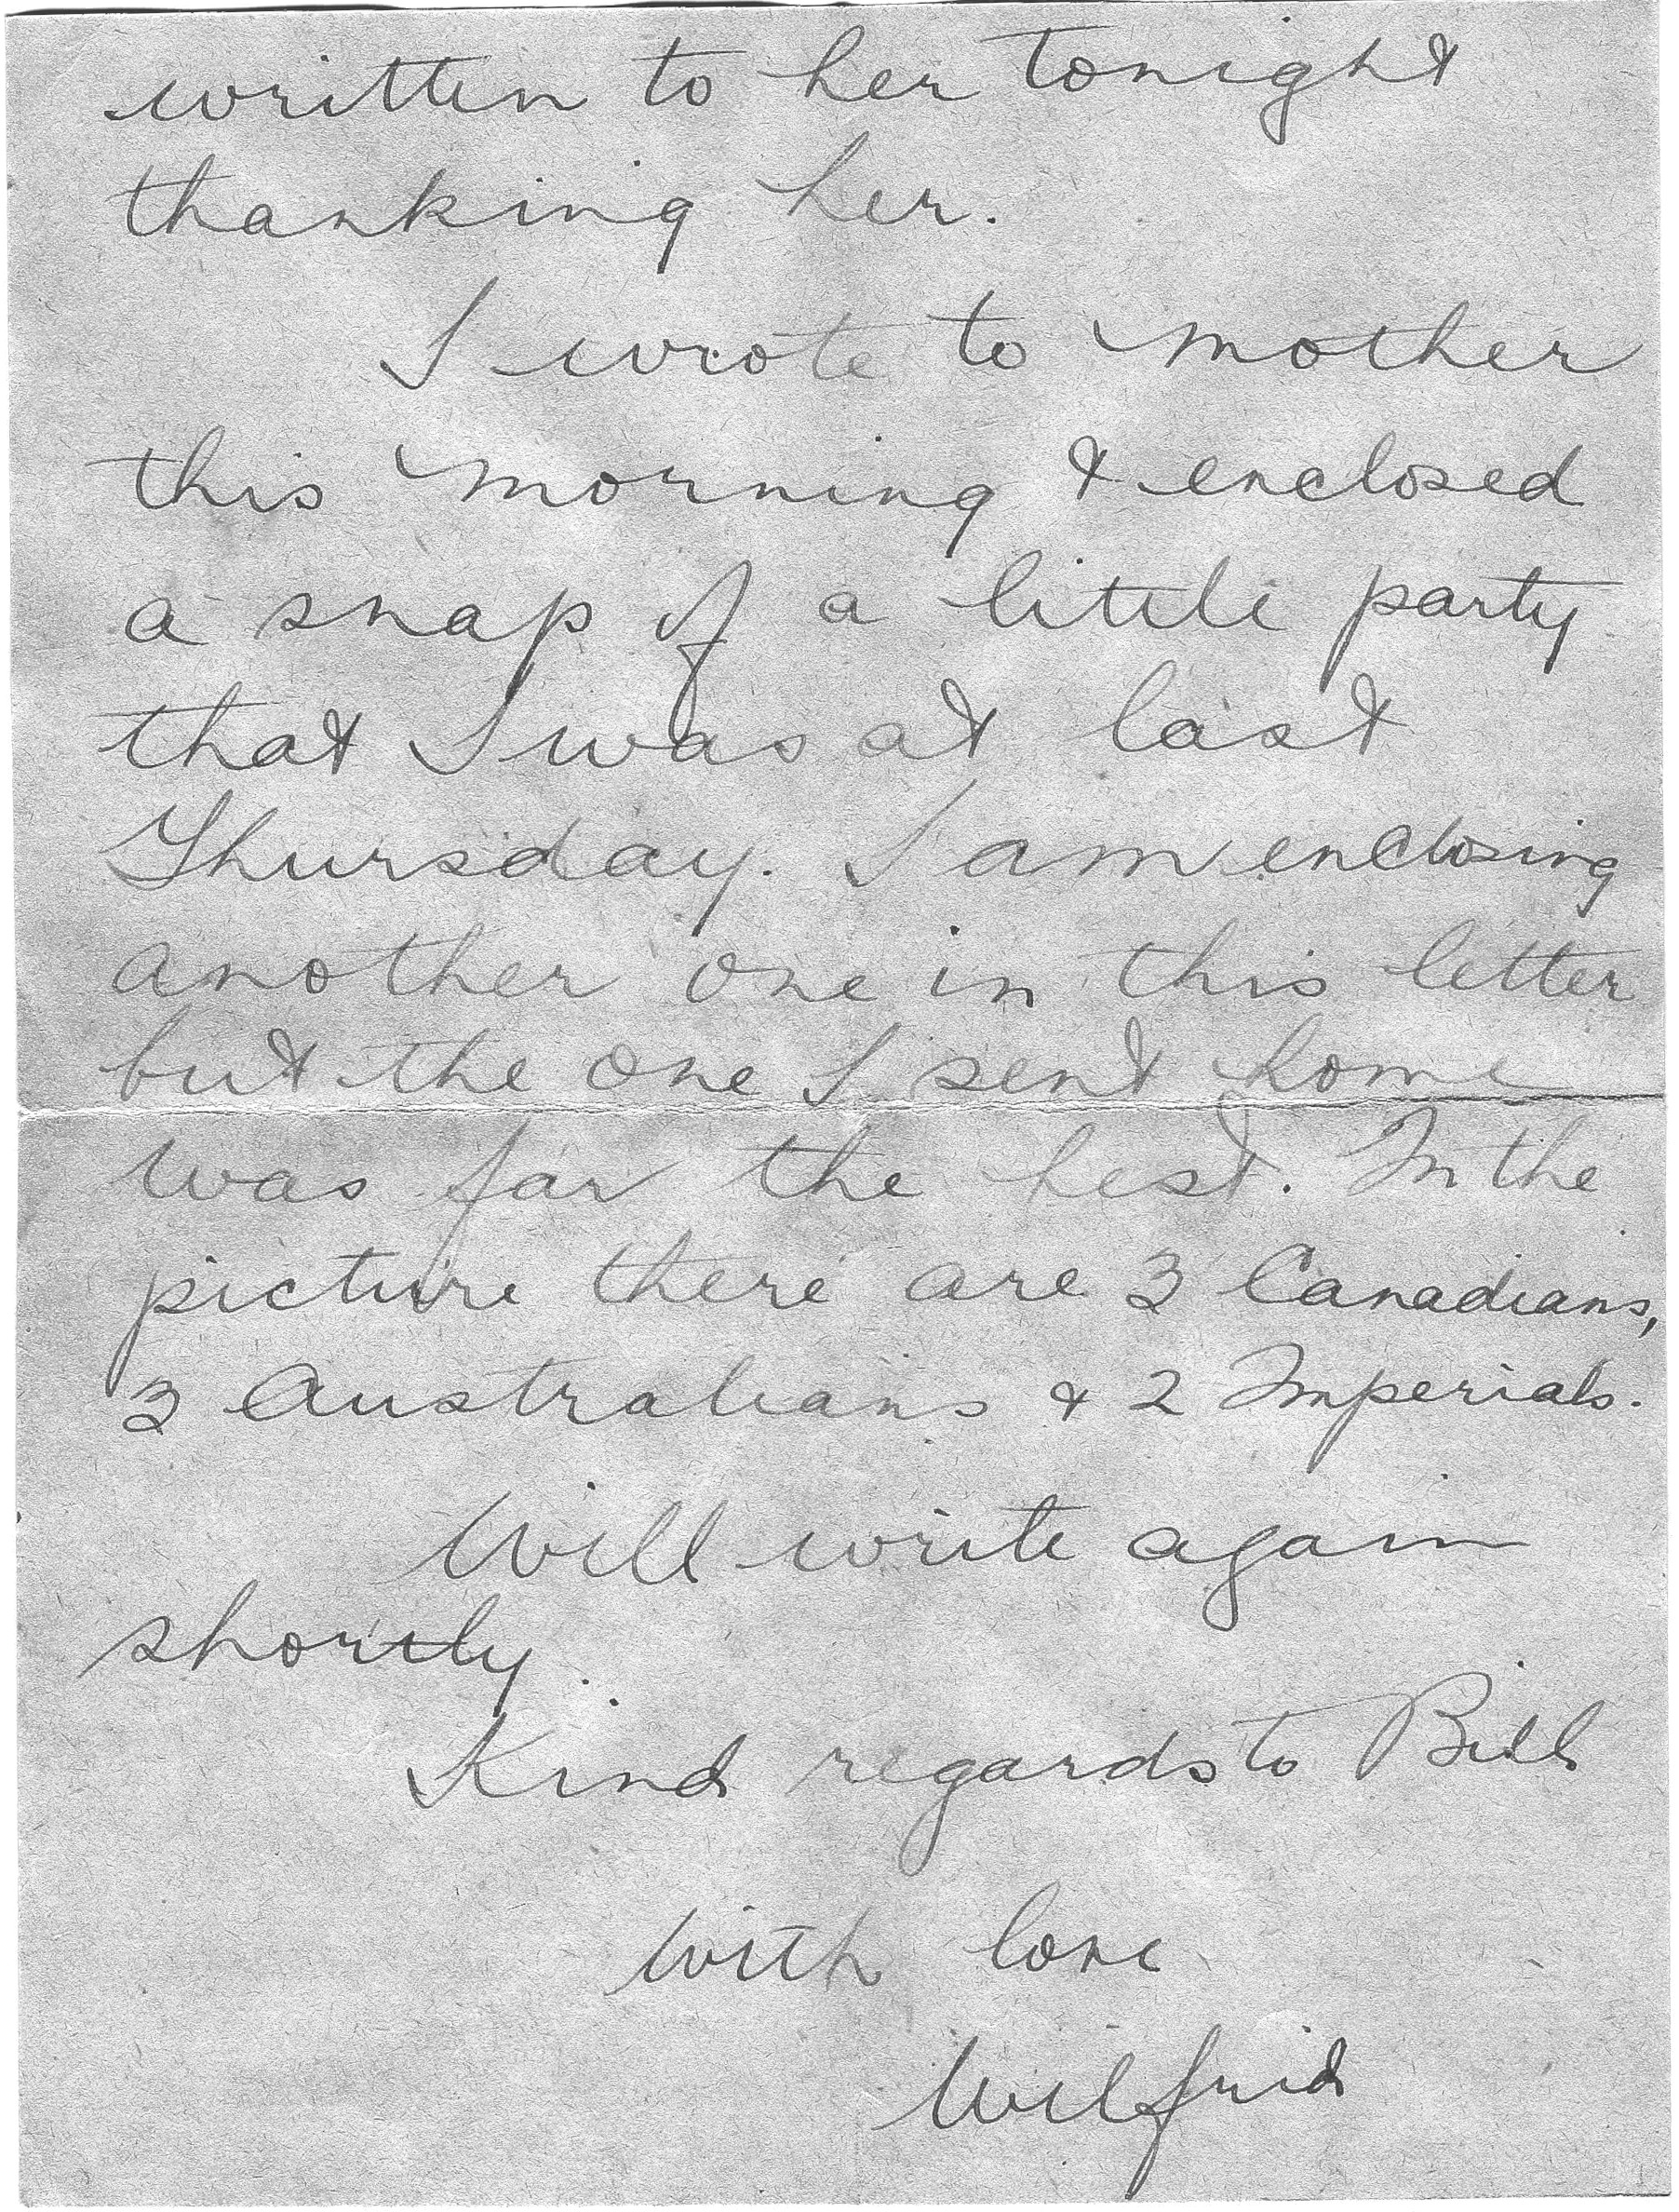 written to her tonight
thanking her.
I wrote to mother
this morning & enclosed
a snap of a little party
that I was at last
Thursday. I am enclosing
another one in this letter
but the one I sent home
was far the best. In the
picture there are 3 Canadians,
3 Australians & 2 Imperials.
Will write again
shortly.
Kind regards to Bill
With love
Wilfrid